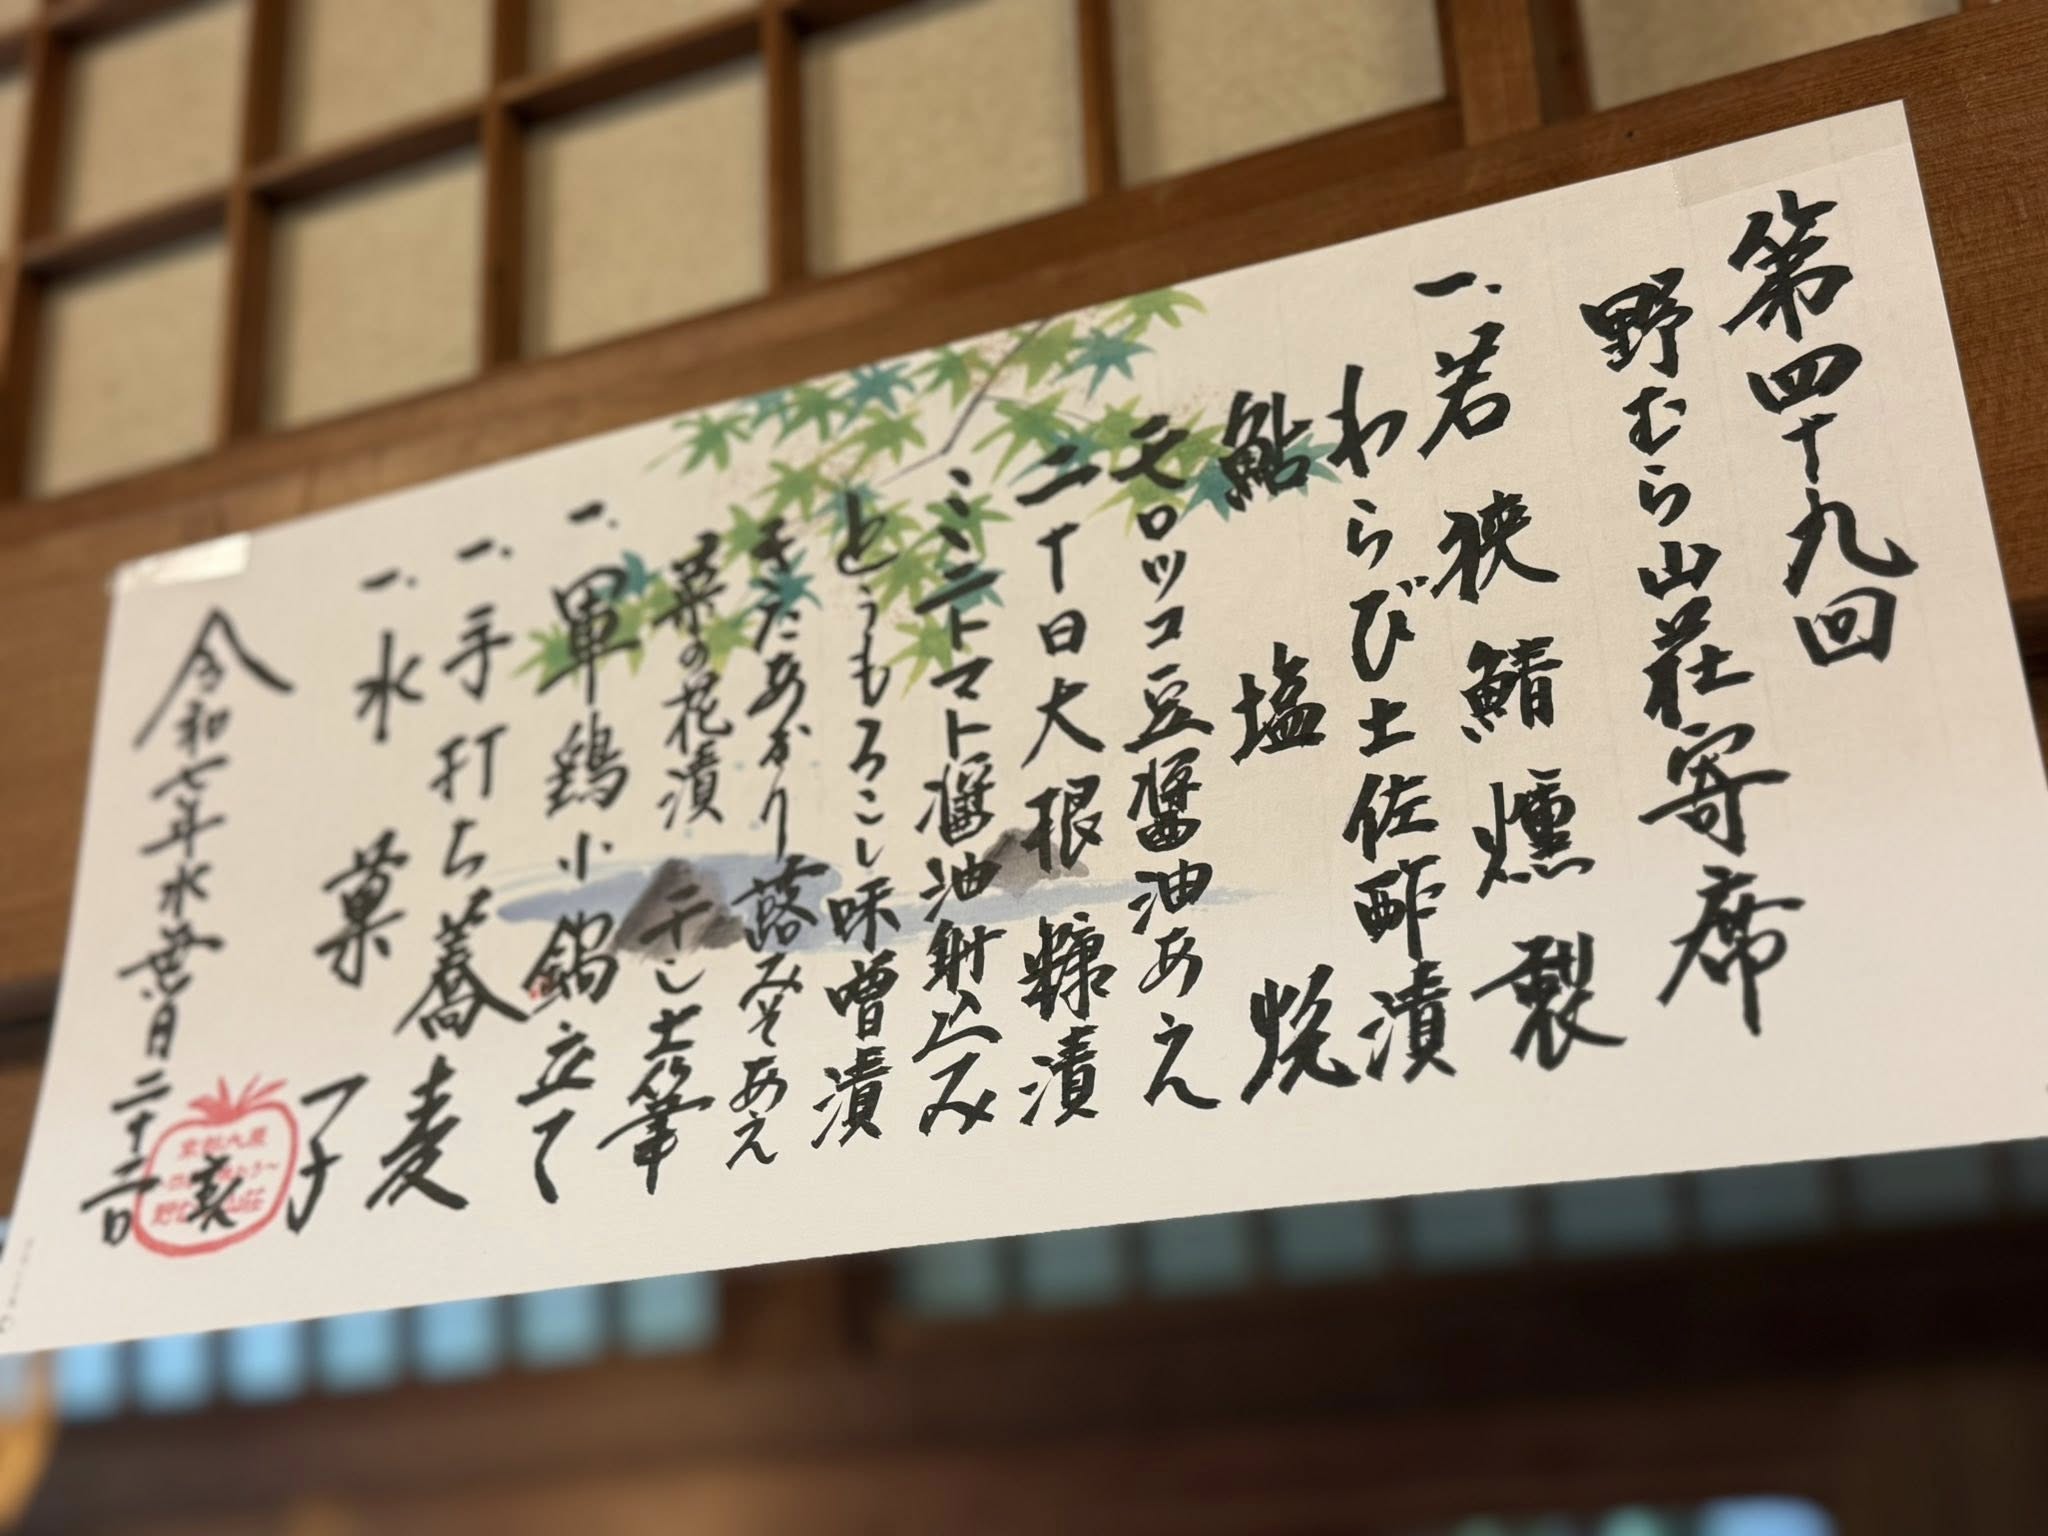 第四十九回
野むら山荘寄席
一、若狭鯖燻製
わらび土佐酢漬
鮎塩焼
モロッコ豆醤油あえ
二十日大根糠漬
ミニトマト醤油射込み
とうもろこし味噌漬
きたあかり蕗みそあえ
菜の花漬 干し土筆
一、軍鶏小鍋立て
一、手打ち蕎麦
一、水菓子
令和七年水無月二十二日